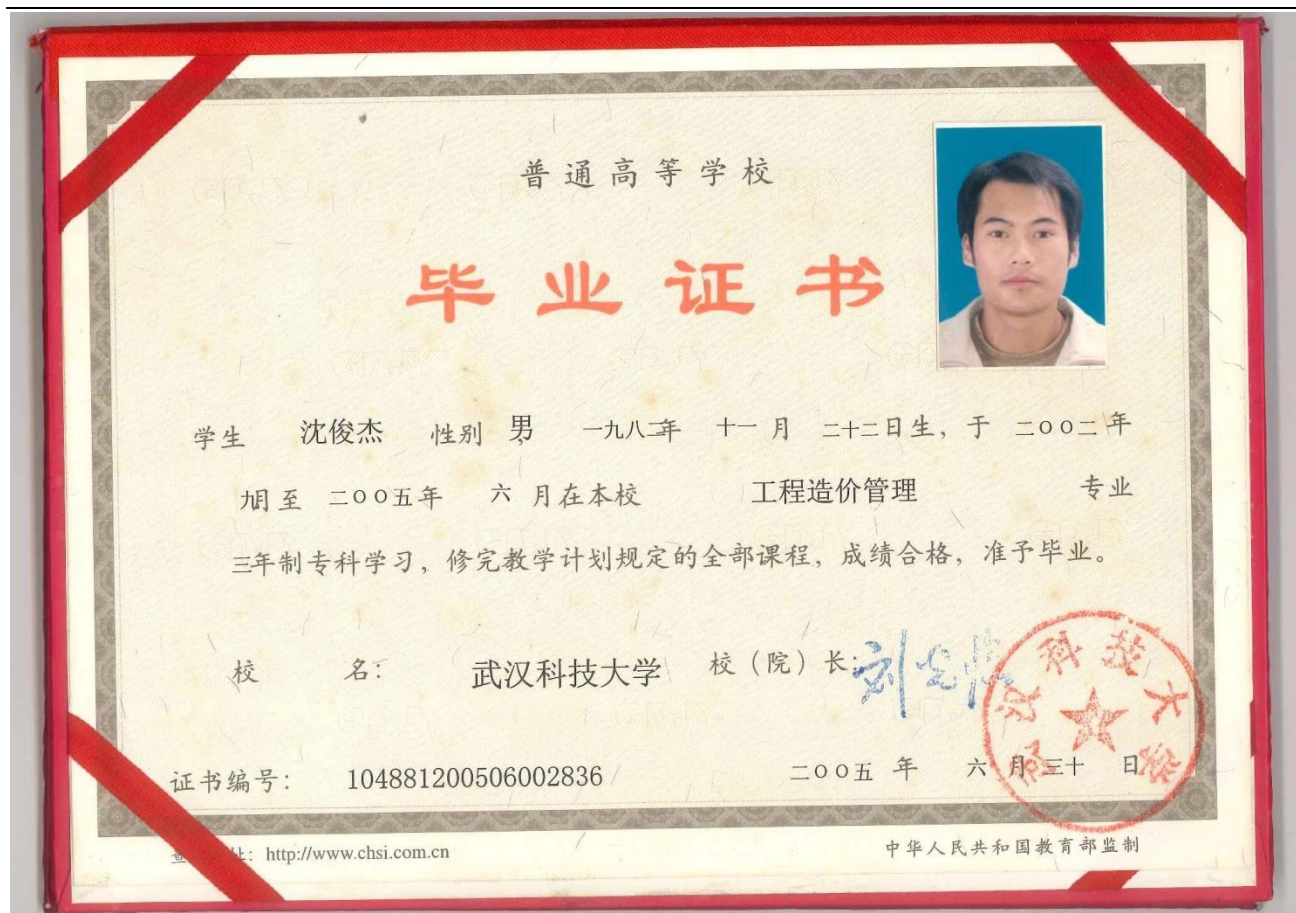 普通高等学校
毕业证书
学生 沈俊杰 性别 男, 一九八二年 十一月 二十二日生, 于 二〇〇二年
九月至 二〇〇五年 六月在本校 工程造价管理 专业
三年制专科学习, 修完教学计划规定的全部课程, 成绩合格, 准予毕业。
校 名: 武汉科技大学 校(院)长:
武汉科技大学
证书编号: 104881200506002836 二〇〇五 年 六 月 三十 日
址: http://www.chsi.com.cn 中华人民共和国教育部监制